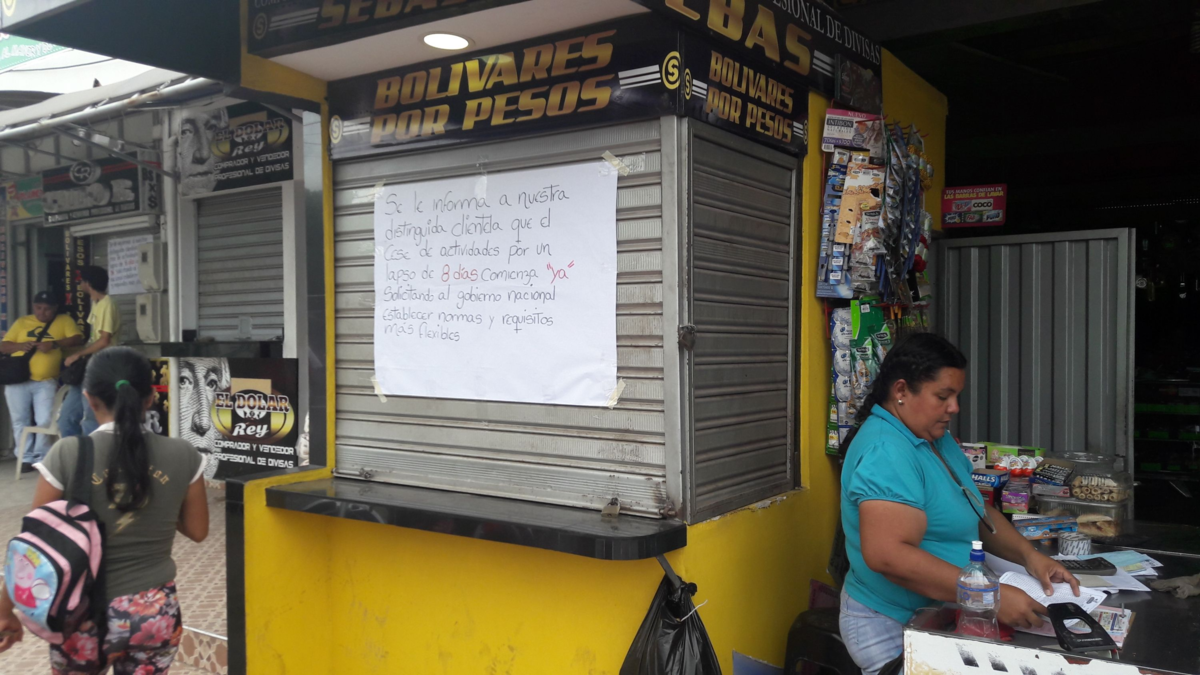 SEBAS
SEBAS
PROFESIONAL DE DIVISAS
BOLIVARES
POR PESOS
BOLIVARES
POR PESOS
Se le informa a nuestra
distinguida clientela que el
Cese de actividades por un
lapso de 8 días Comienza "ya"
Solicitando al gobierno nacional
establecer normas y requisitos
más flexibles
EL DOLAR
Rey
COMPRADOR Y VENDEDOR
PROFESIONAL DE DIVISAS
EL DOLAR
Rey
COMPRADOR Y VENDEDOR
PROFESIONAL DE DIVISAS
BOLIVARES
NUEVO
COCO
HALLS